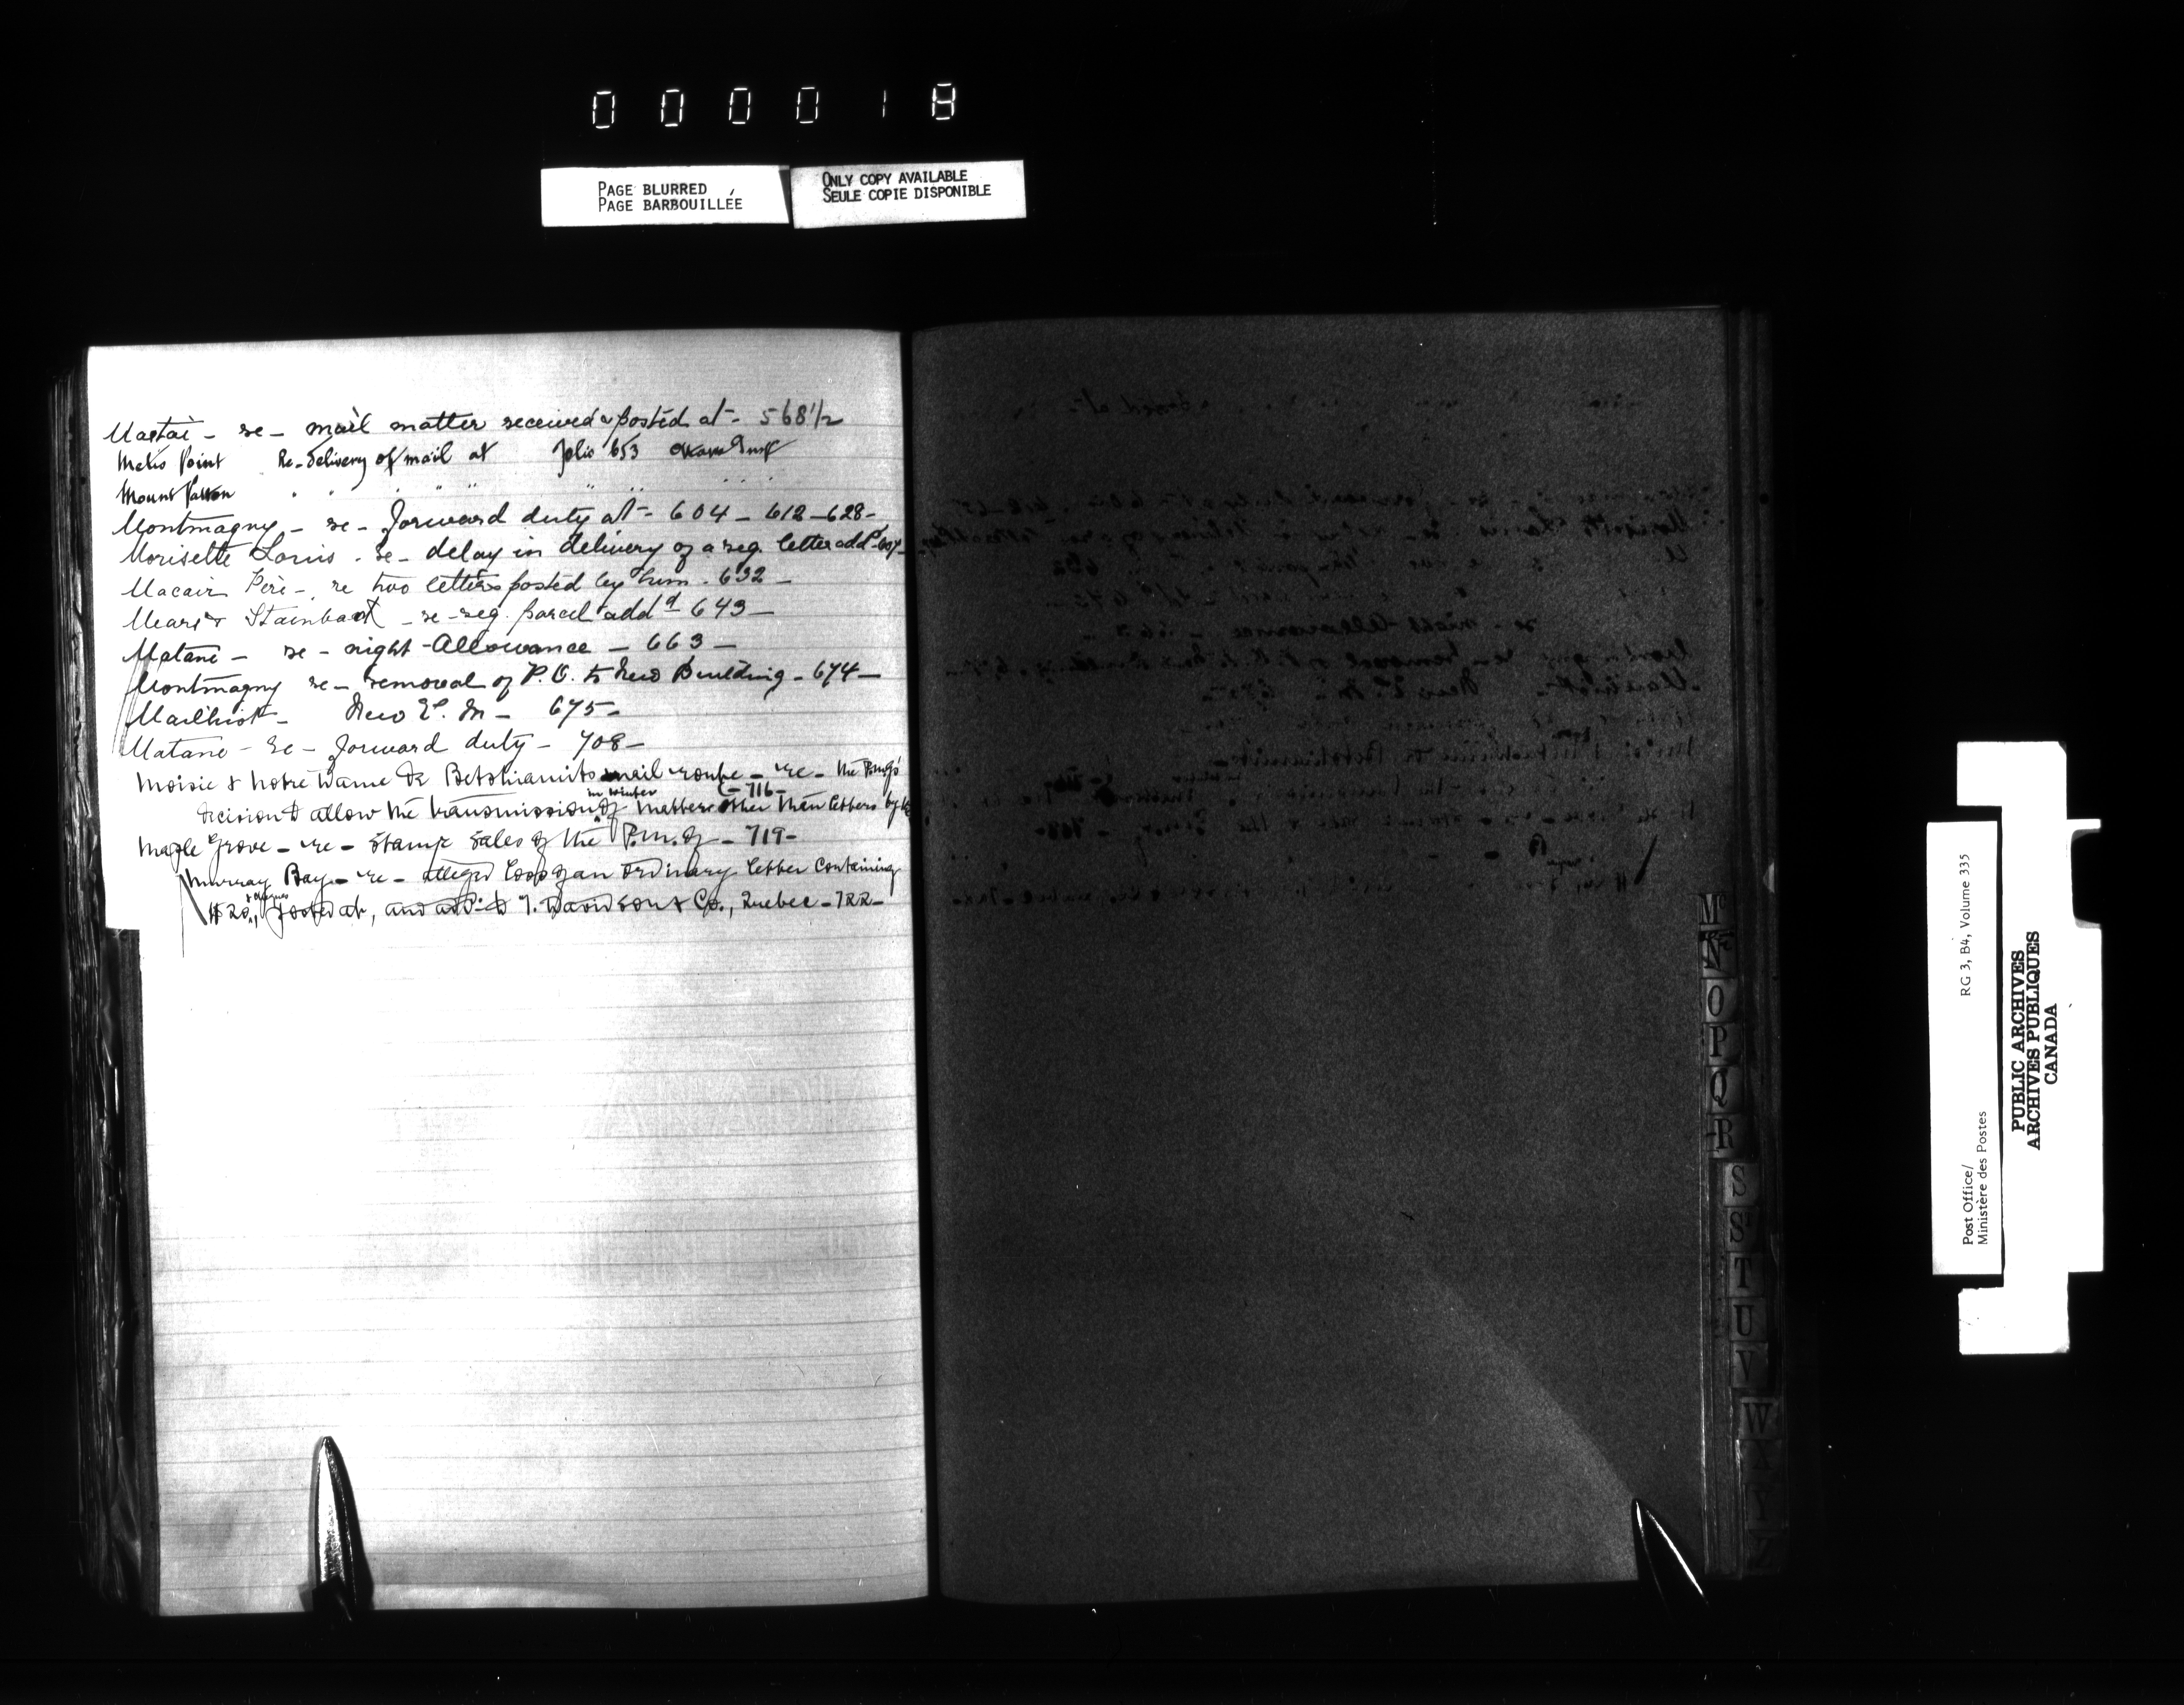 000018
PAGE BLURRED
PAGE BARBOUILLÉE
ONLY COPY AVAILABLE
SEULE COPIE DISPONIBLE
Mastai - re - mail matter received & posted at - 568 1/2
Metis Point Re-delivery of mail at folio 653
Mount " " " "
Montmagny - re - forward duty at - 604 - 612 - 628 -
Morisette Louis - re - delay in delivery of a reg. letter add^d - 607 -
Macair Père - re two letters posted by him - 632 -
Mears & Stainback - re - reg. parcel add^d 643 -
Matane - re - night - Allowance - 663 -
Montmagny re - removal of P. O. to New Building - 674 -
Mailhiot - New P. M - 675 -
Matane - re - forward duty - 708 -
Moisie & Notre Dame de Betshiamits mail route - re - the P.M.G's
decision to allow the transmission in winter of matter other than letters by (- 716 -
Maple Grove - re - stamp sales of the P.M. of - 719 -
Murray Bay - re - alleged loss of an ordinary letter containing
$20, posted at, and add^d to T. Davidson & Co., Quebec - 722 -
Mc
N
O
P
Q
R
S
S
T
U
V
W
X
Y
Z
Post Office/
Ministère des Postes
RG 3, B4, Volume 335
PUBLIC ARCHIVES
ARCHIVES PUBLIQUES
CANADA